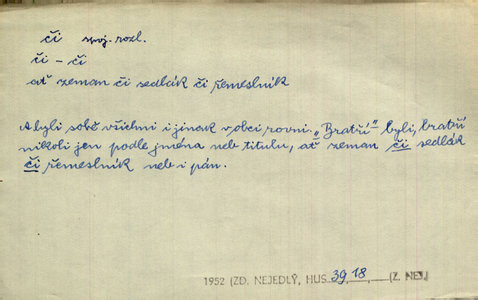 či spoj. rozl.
či – či
ať zeman či sedlák či řemeslník
A byli sobě všichni i jinak v obci rovni. „Bratří“ byli, bratří
nikoli jen podle jména neb titulu, ať zeman či sedlák
či řemeslník neb i pán.
1952 (ZD. NEJEDLÝ, HUS 39, 18, (Z. NEJ.)